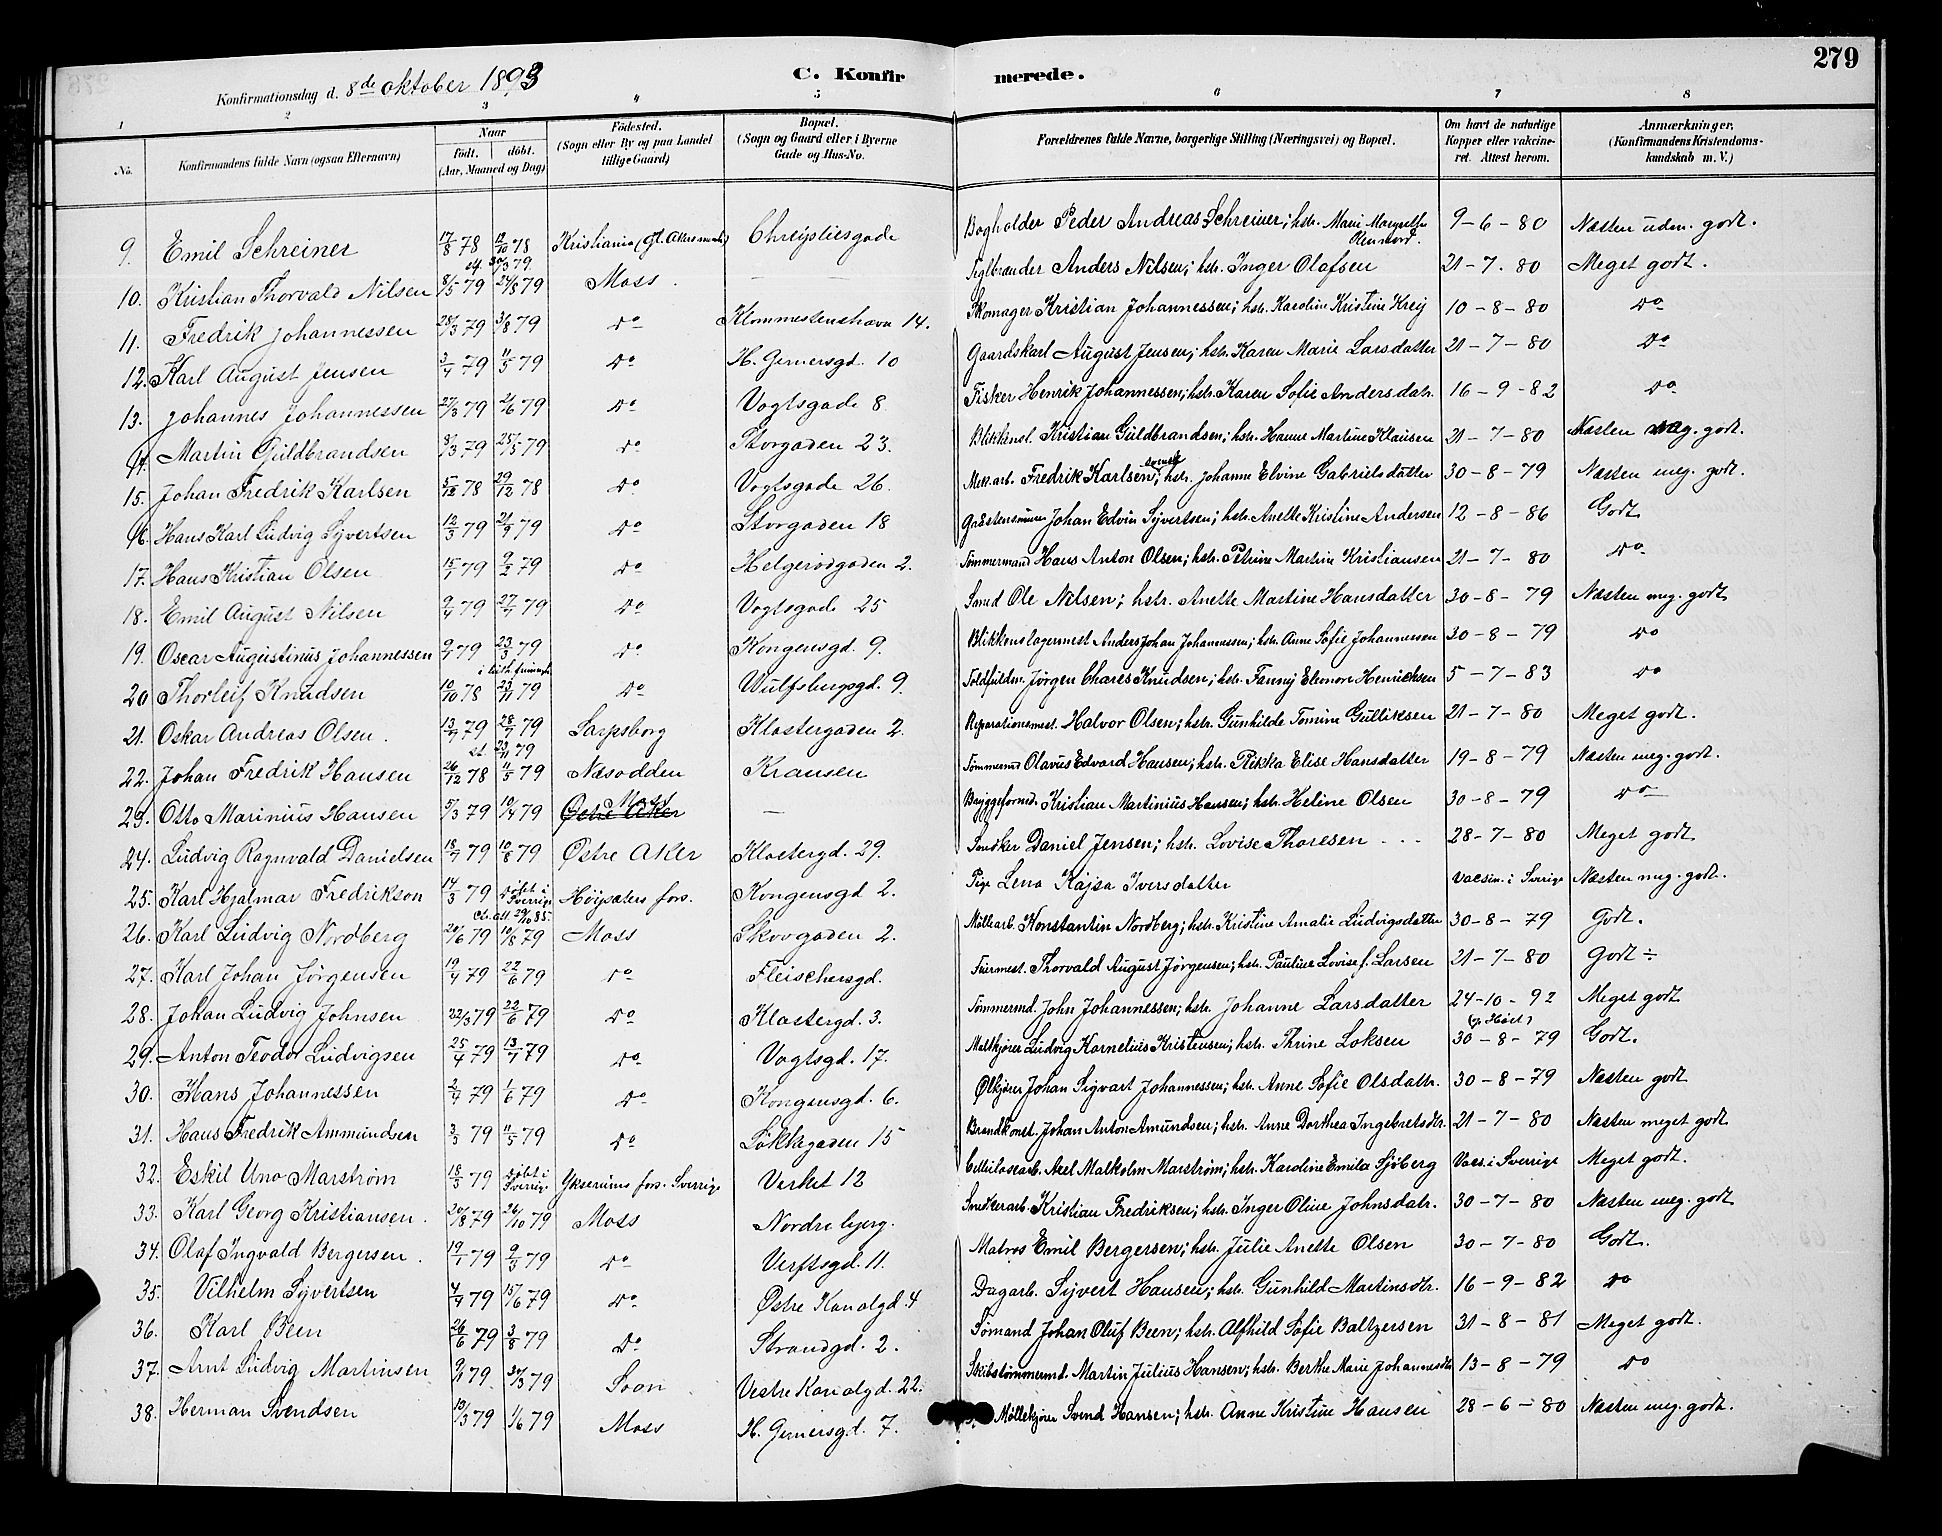 279
Konfirmationsdag d. 8de oktober 1893 C. Konfirmerede.
1 2 3 4 5 6 7 8
No. Konfirmandens fulde Navn (ogsaa Efternavn) Naar født. døbt. (Aar, Maaned og Dag) Fødested. (Sogn eller By og paa Landet tillige Gaard) Bopæl. (Sogn og Gaard eller i Byerne Gade og Hus-No. Forældrenes fulde Navne, borgerlige Stilling (Næringsvei) og Bopæl. Om havt de naturlige Kopper eller vakcineret. Attest herom. Anmærkninger. (Konfirmandens Kristendomskundskab m. V.)
9. Emil Schreiner 17/8 78 12/10 78 Kristiania Bogholder Peder Andreas Schreiner; hstr. Marie 9-6-80 Næsten udm. godt.
10. Kristian Thorvald Nilsen 8/5 79 24/8 79 Moss — Teglbrænder Anders Nilsen; hstr. Inger Olafsen 21-7-80 Meget godt.
11. Fredrik Johannessen 28/3 79 3/8 79 Do 14. Skomager Kristian Johannessen; hstr. Karoline Kristine 10-8-80 Do
12. Karl August Jensen 3/4 79 11/5 79 Do H. Gernersgd. 10 Gaardskarl August Jensen; hstr. Karen Marie Larsdatter 21-7-80 Do
13. Johannes Johannessen 27/3 79 2/6 79 Do Vogtsgade 8 Fisker Henrik Johannessen; hstr. Karen Sofie Andersdatr. 16-9-82 Do
14. Martin Guldbrandsen 8/3 79 25/5 79 Do Storgaden 23. Kristian Guldbrandsen; hstr. Hanne Martine Klausen 21-7-80 Næsten meg. godt.
15. Johan Fredrik Karlsen 5/12 78 29/12 78 Do Vogtsgade 26. Mek. arb. Fredrik Karlsen, svensk; hstr. Johanne Elvine Gabrielsdatter 30-8-79 Næsten meg. godt.
16. Hans Karl Ludvig Syvertsen 12/3 79 21/9 79 Do Storgaden 18 Johan Edvin Syvertsen; hstr. Anette Kristine Andersen 12-8-86 Godt
17. Hans Kristian Olsen 15/1 79 9/2 79 Do Helgerødgaden 2. Tømmermand Hans Anton Olsen; hstr. Petrine Martine Kristiansen 21-7-80 Do
18. Emil August Nilsen 9/4 79 27/7 79 Do Vogtsgade 25 Smed Ole Nilsen; hstr. Anette Martine Hansdatter 30-8-79 Næsten meg. godt
19. Oscar Augustinus Johannessen 9/1 79 23/3 79 Do Kongensgd. 9. Blikkenslagermest. Anders Johan Johannessen; hstr. Anne Sofie Johannesen 30-8-79 Do
20 Thorleif Knudsen 10/10 78 23/11 79 Do Wulfsbergsgd. 9. Toldfuldm. Jørgen Chares Knudsen; hstr. Fanny Elenore Henrichsen 5-7-83 Do
21. Oskar Andreas Olsen. 13/7 79 28/7 79 Sarpsborg Klostergaden 2. Reparationsmest. Halvor Olsen; hstr. Gunhilde Tomine Gulliksen 21-7-80 Meget godt.
22. Johan Fredrik Hansen 26/12 78 11/5 79 Næsodden Kransen Tømmermd Olavus Edvard Hansen; hstr. Rikka Elise Hansdatter 19-8-79 Næsten meg. godt.
23. Otto Marinius Hansen 5/3 79 10/4 79 Østre Aker Moss — Bryggeformd. Kristian Martinius Hansen; hstr. Heline Olsen 30-8-79 Do
24. Ludvig Ragnvald Danielsen 18/7 79 10/8 79 Østre Aker Klostergd. 29. Snedker Daniel Jensen; hstr. Lovise Thoresen 28-7-80 Meget godt
25. Karl Hjalmar Fredrikson 14/3 79 døbt i Sverrige Højsæters fors. Kongensgd 2. Pige Lena Kajsa Iversdatter Vaccin. i Sverige Næsten meg. godt.
26. Karl Ludvig Nordberg 20/6 79 10/8 79 Moss Skovgaden 2. Møllearb. Konstantin Nordberg; hstr. Kristine Amalie Ludvigsdatter 30-8-79 Godt.
27. Karl Johan Jørgensen 19/4 79 22/6 79 Do Fleischersgd. Feiermest. Thorvald August Jørgensen; hstr. Pauline Lovise f. Larsen 21-7-80 Godt ÷
28. Johan Ludvig Johnsen 22/3 79 22/6 79 Do Klostergd. 3. Tømmermd. John Johannessen; hstr. Johanne Larsdatter 24-10-92 Meget godt
29. Anton Teodor Ludvigsen 25/4 79 13/7 79 Do Vogtsgd. 17. Maltkjører Ludvig Kornelius Kristensen; hstr. Thrine Loksen 30-8-79 Godt.
30. Hans Johannessen 2/4 79 1/6 79 Do Kongensgd. 6. Ølkjører Johan Sigvart Johannessen; hstr. Anne Sofie Olsdattr. 30-8-79 Næsten godt
31. Hans Fredrik Ammundsen 3/3 79 11/5 79 Do Løkkegaden 15 Brandkonst. Johan Anton Amundsen; hstr. Anne Dorthea Ingebretsdtr. 21-7-80 Næsten meget godt
32. Eskil Uno Marstrøm 18/3 79 døbt i Sverrige fors. Sverrige Verket 12 Cellulosearb. Axel Malkolm Marstrøm; hstr. Karoline Emilia Sjøberg Vacs. i Sverrige Meget godt.
33. Karl Georg Kristiansen. 20/8 79 26/10 79 Moss Nordre bjerg. Snedkerarb. Kristian Fredriksen; hstr. Inger Oline Johnsdatr. 30-7-80 Næsten meg. godt
34. Olaf Ingvald Bergersen. 19/1 79 9/3 79 Do Verftsgd. 11. Matros Emil Bergersen; hstr. Julie Anette Olsen 30-7-80 Godt.
35. Vilhelm Syvertsen 4/4 79 15/6 79 Do Østre Kanalgd. 4 Dagarb. Syvert Hansen; hstr. Gunhild Martinsdtr. 16-9-82 Do
36. Karl Been 26/6 79 3/8 79 Do Strandgd. 2. Sømand Johan Oluf Been; hstr. Alfhild Sofie Baltzersen 31-8-81 Meget godt.
37. Arnt Ludvig Martinsen 9/1 79. 30/3 79 Soon Vestre Kanalgd. 22. Skibstømmermd. Martin Julius Hansen; hstr. Berthe Marie Johannesdtr 13-8-79 Do
38. Herman Svendsen 10/3 79 1/6 79 Moss H. Gernersgd. 7. Møllekjører Svend Hansen; hstr. Anne Kristine Hansen 28-6-80 Næsten meg. godt.